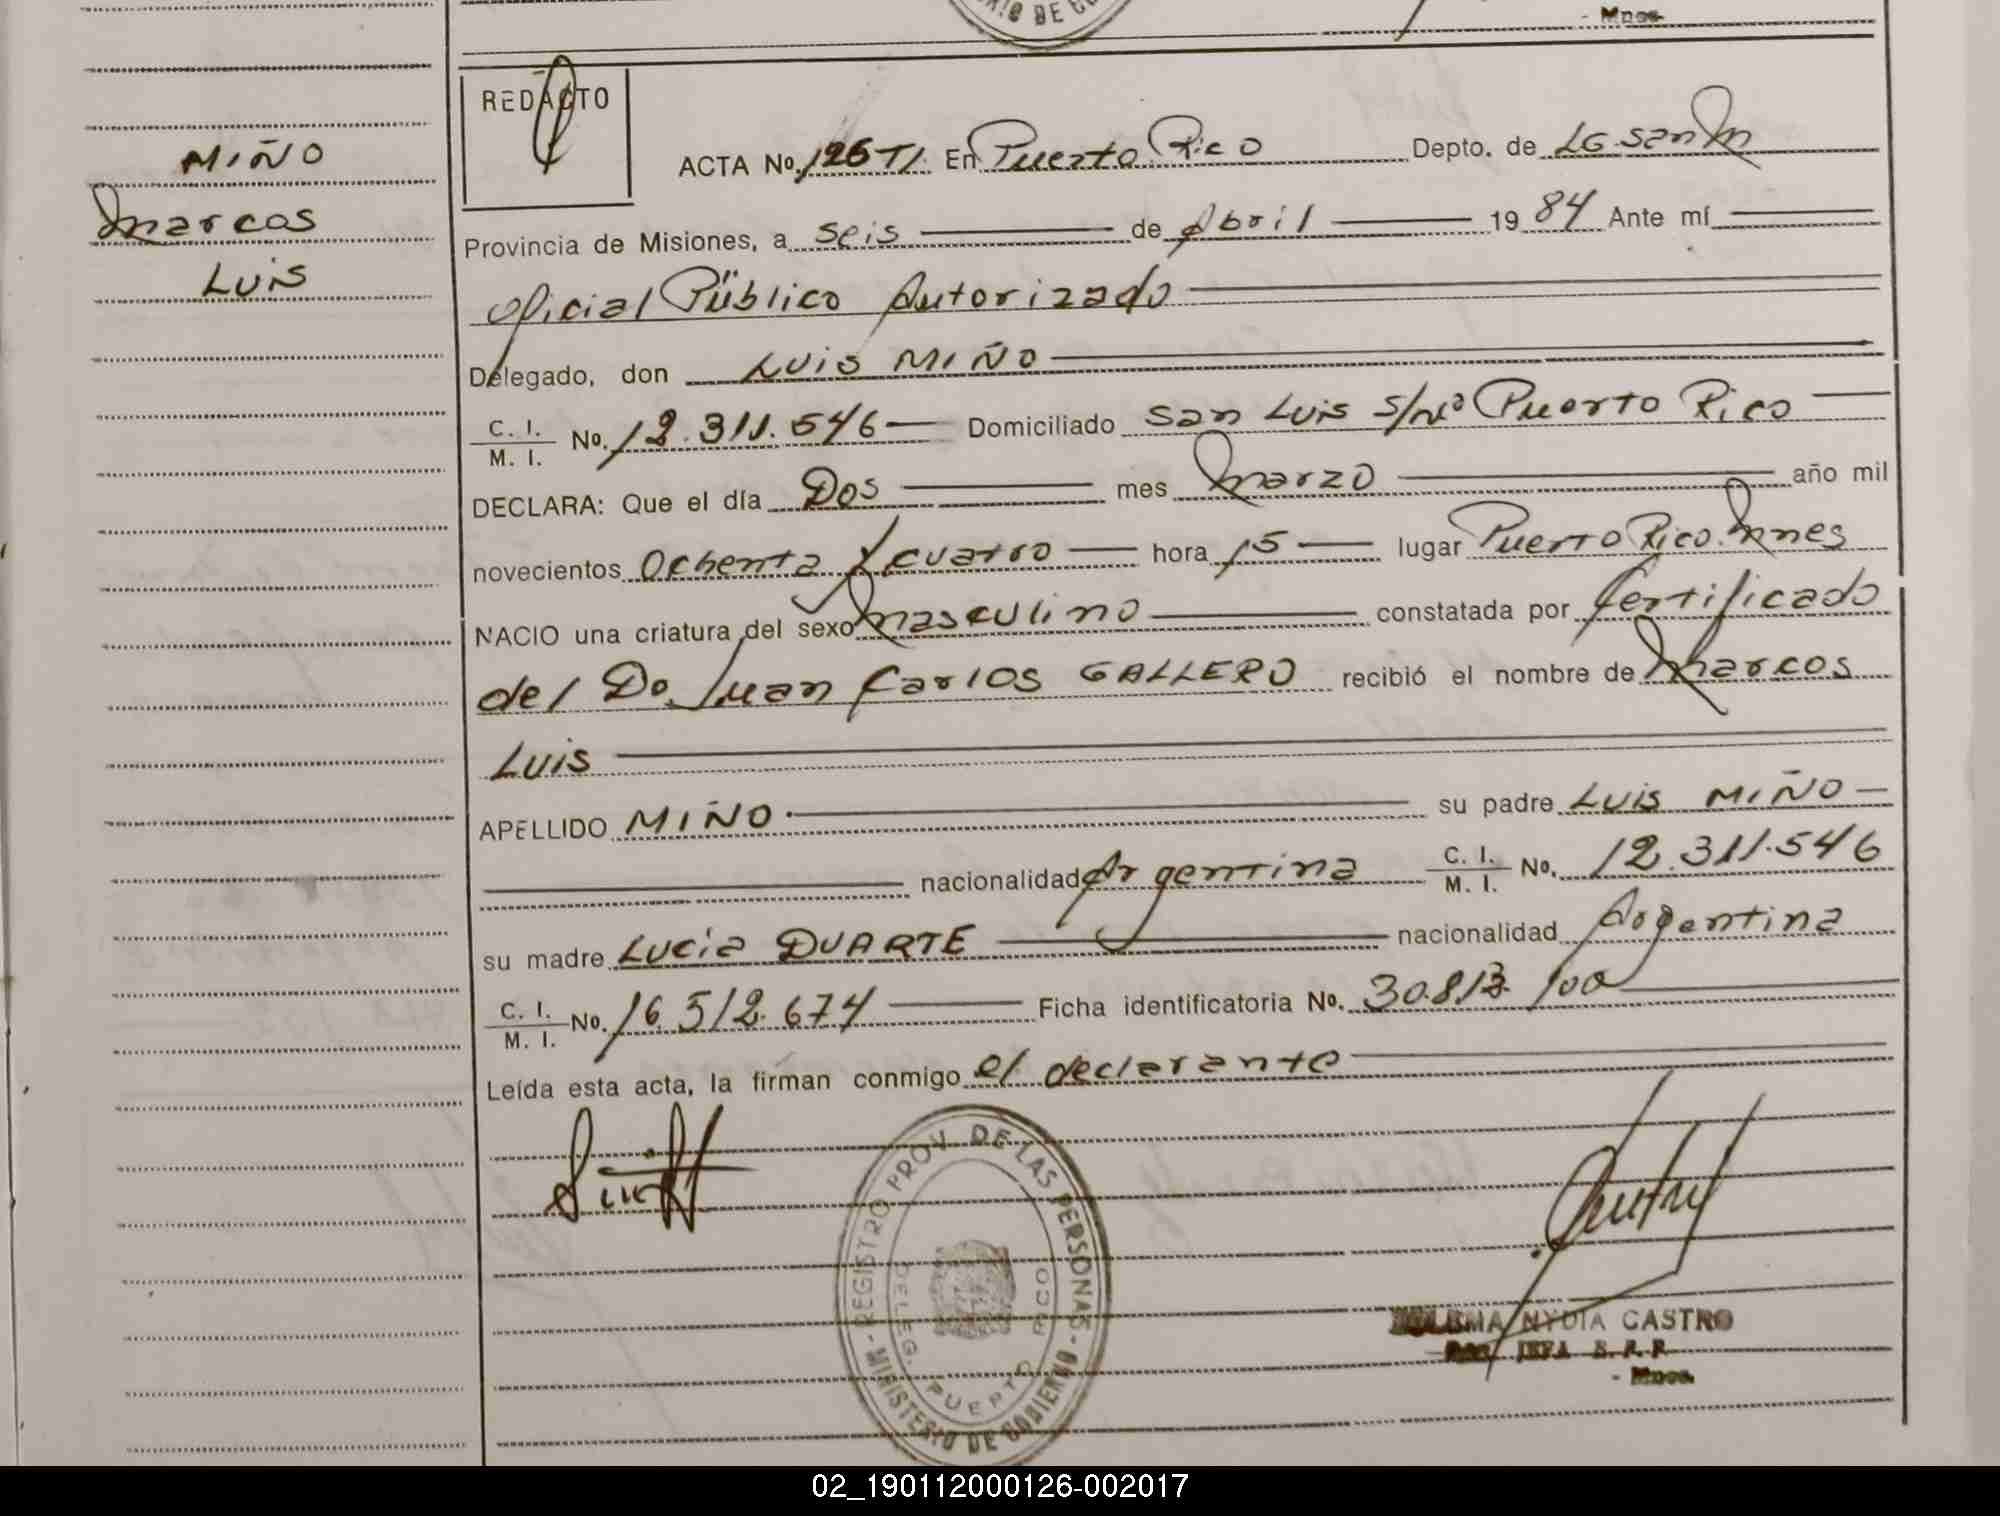 RIO DE GO
- Mnes.
REDACTO
MIÑO
Marcos
Luis
ACTA No. 126 T1. En Puerto Rico Depto. de LG San M
Provincia de Misiones, a seis de Abril 1984 Ante mí
Oficial Público Autorizado
Delegado, don Luis MIÑO
C. I. / M. I. No. 12.311.546 Domiciliado San Luis s/nº Puerto Rico
DECLARA: Que el día Dos mes Marzo año mil
novecientos Ochenta y cuatro hora 15 lugar Puerto Rico Mnes
NACIO una criatura del sexo Masculino constatada por Certificado
del Do. Juan Carlos GALLERO recibió el nombre de Marcos
Luis
APELLIDO MIÑO su padre Luis MIÑO
nacionalidad Argentina C. I. / M. I. No. 12.311.546
su madre Lucia DUARTE nacionalidad Argentina
C. I. / M. I. No. 16.512.674 Ficha identificatoria No. 30.813.100
Leída esta acta, la firman conmigo el declarante
REGISTRO PROV. DE LAS PERSONAS - MINISTERIO DE GOBIERNO -
DELEG. PUERTO RICO
NYDIA CASTRO
JEFA
- Mnes.
02_190112000126-002017